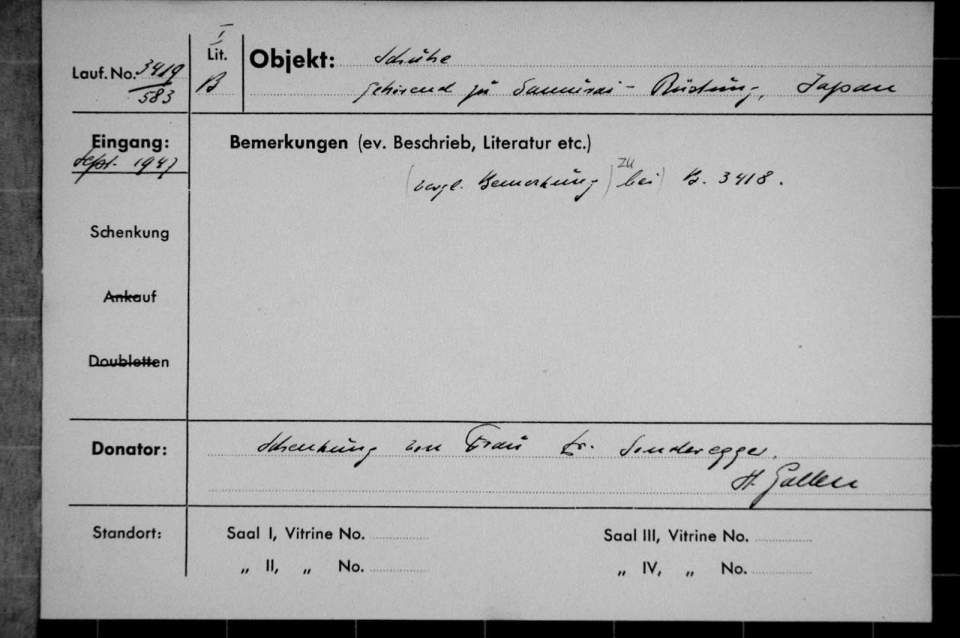 I
Lauf. No. 3419
583
Lit.
B
Objekt: Schuhe
gehörend zu Samurai-Rüstung, Japan
Eingang:
Sept. 1947
Bemerkungen (ev. Beschrieb, Literatur etc.)
(vergl. Bemerkung) zu bei) B. 3418.
Schenkung
Ankauf
Doubletten
Donator: Schenkung von Frau Dr. Sonderegger,
St. Gallen
Standort:
Saal I, Vitrine No.
Saal III, Vitrine No.
„ II, „ No.
„ IV, „ No.